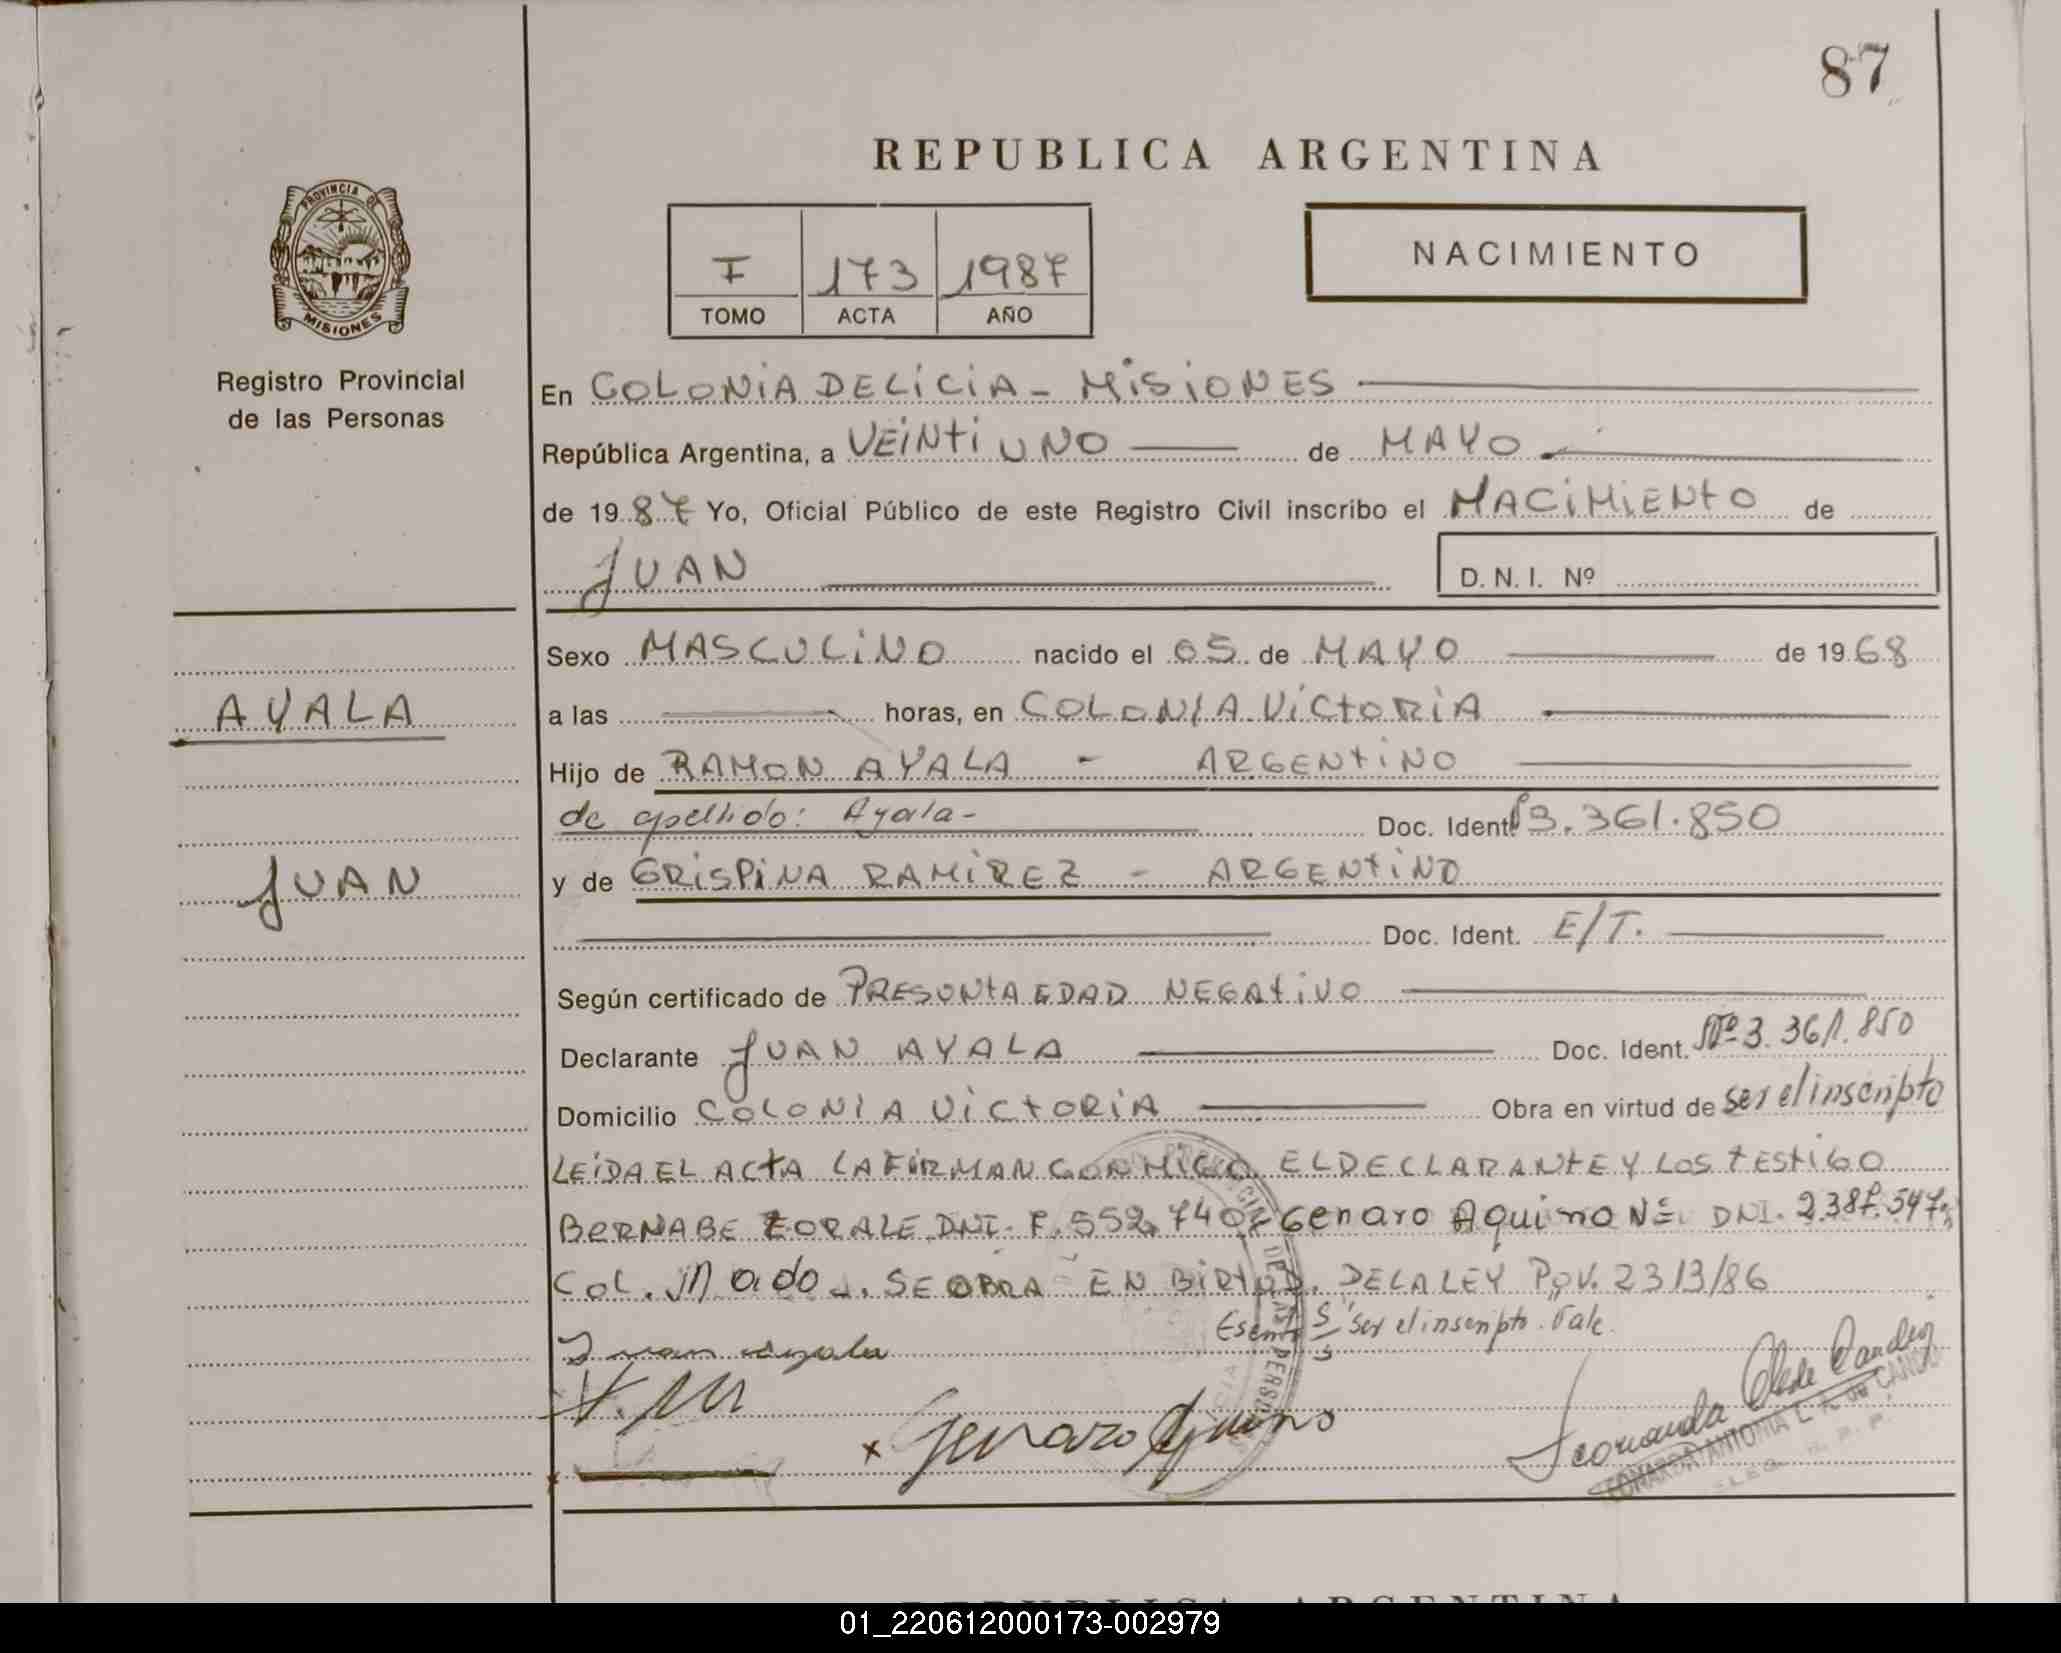 87
REPUBLICA ARGENTINA
PROVINCIA DE
MISIONES
Registro Provincial
de las Personas
I 173 1987
TOMO ACTA AÑO
NACIMIENTO
En COLONIA DELICIA - MISIONES
República Argentina, a VEINTIUNO de MAYO
de 1987 Yo, Oficial Público de este Registro Civil inscribo el NACIMIENTO de
JUAN
D.N.I. Nº
Sexo MASCULINO nacido el 05 de MAYO de 1968
AYALA
a las horas, en COLONIA VICTORIA
Hijo de RAMON AYALA - ARGENTINO
de apellido: Ayala-
Doc. Ident. 3.361.850
JUAN
y de CRISPINA RAMIREZ - ARGENTINO
Doc. Ident. E/T.
Según certificado de PRESUNTA EDAD NEGATIVO
Declarante JUAN AYALA Doc. Ident. Nº 3.361.850
Domicilio COLONIA VICTORIA Obra en virtud de ser el inscripto
LEIDA EL ACTA LA FIRMAN CONMIGO EL DECLARANTE Y LOS TESTIGO
BERNABE DNI. 7.552.740 Genaro Aquino DNI. 2.387.547
COL. Mado. SE OBRA EN BIRTUD. DE LA LEY 2313/86
"Ser el inscripto. Vale.
Juan Ayala
Genaro Aquino
REPUBLICA ARGENTINA
01_220612000173-002979